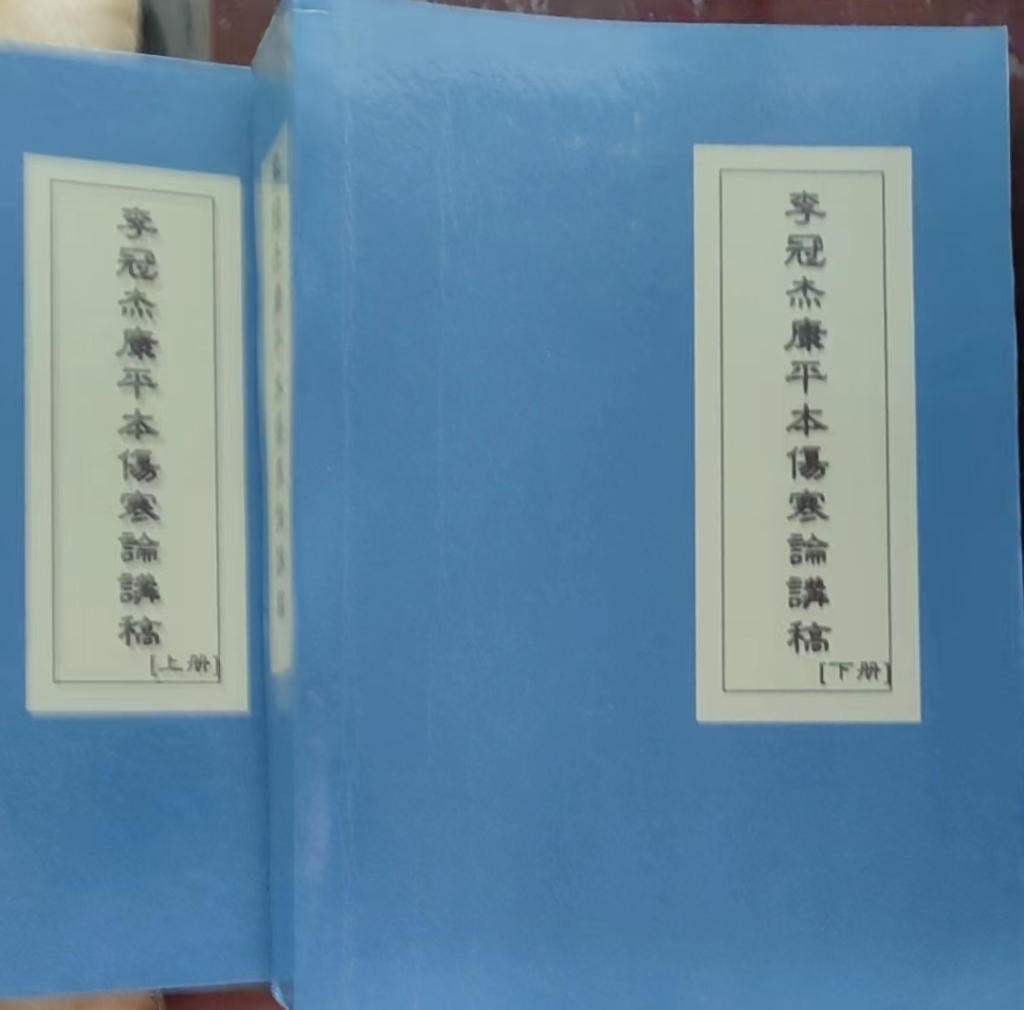 李冠杰康平本傷寒論講稿
[上册]
李冠杰康平本傷寒論講稿
[下册]